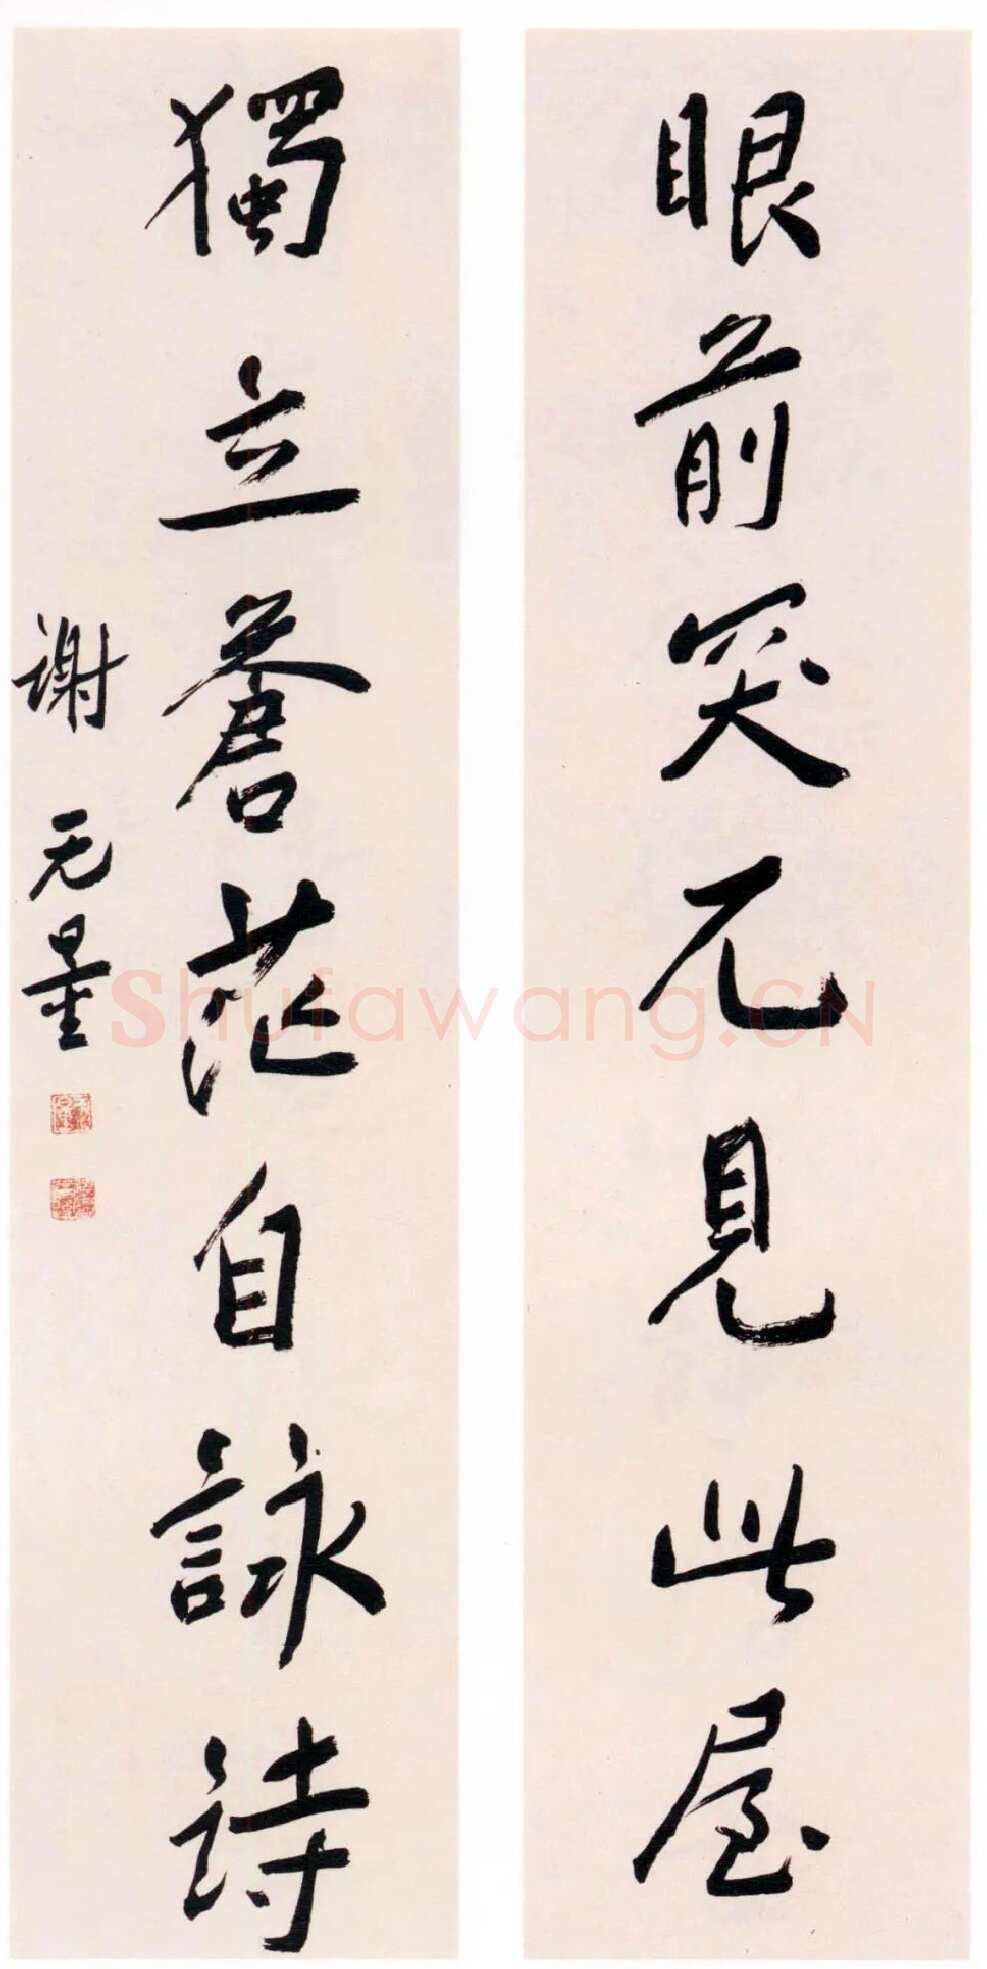 眼前突兀見此屋
獨立蒼茫自詠詩
謝无量
Shufawang.CN